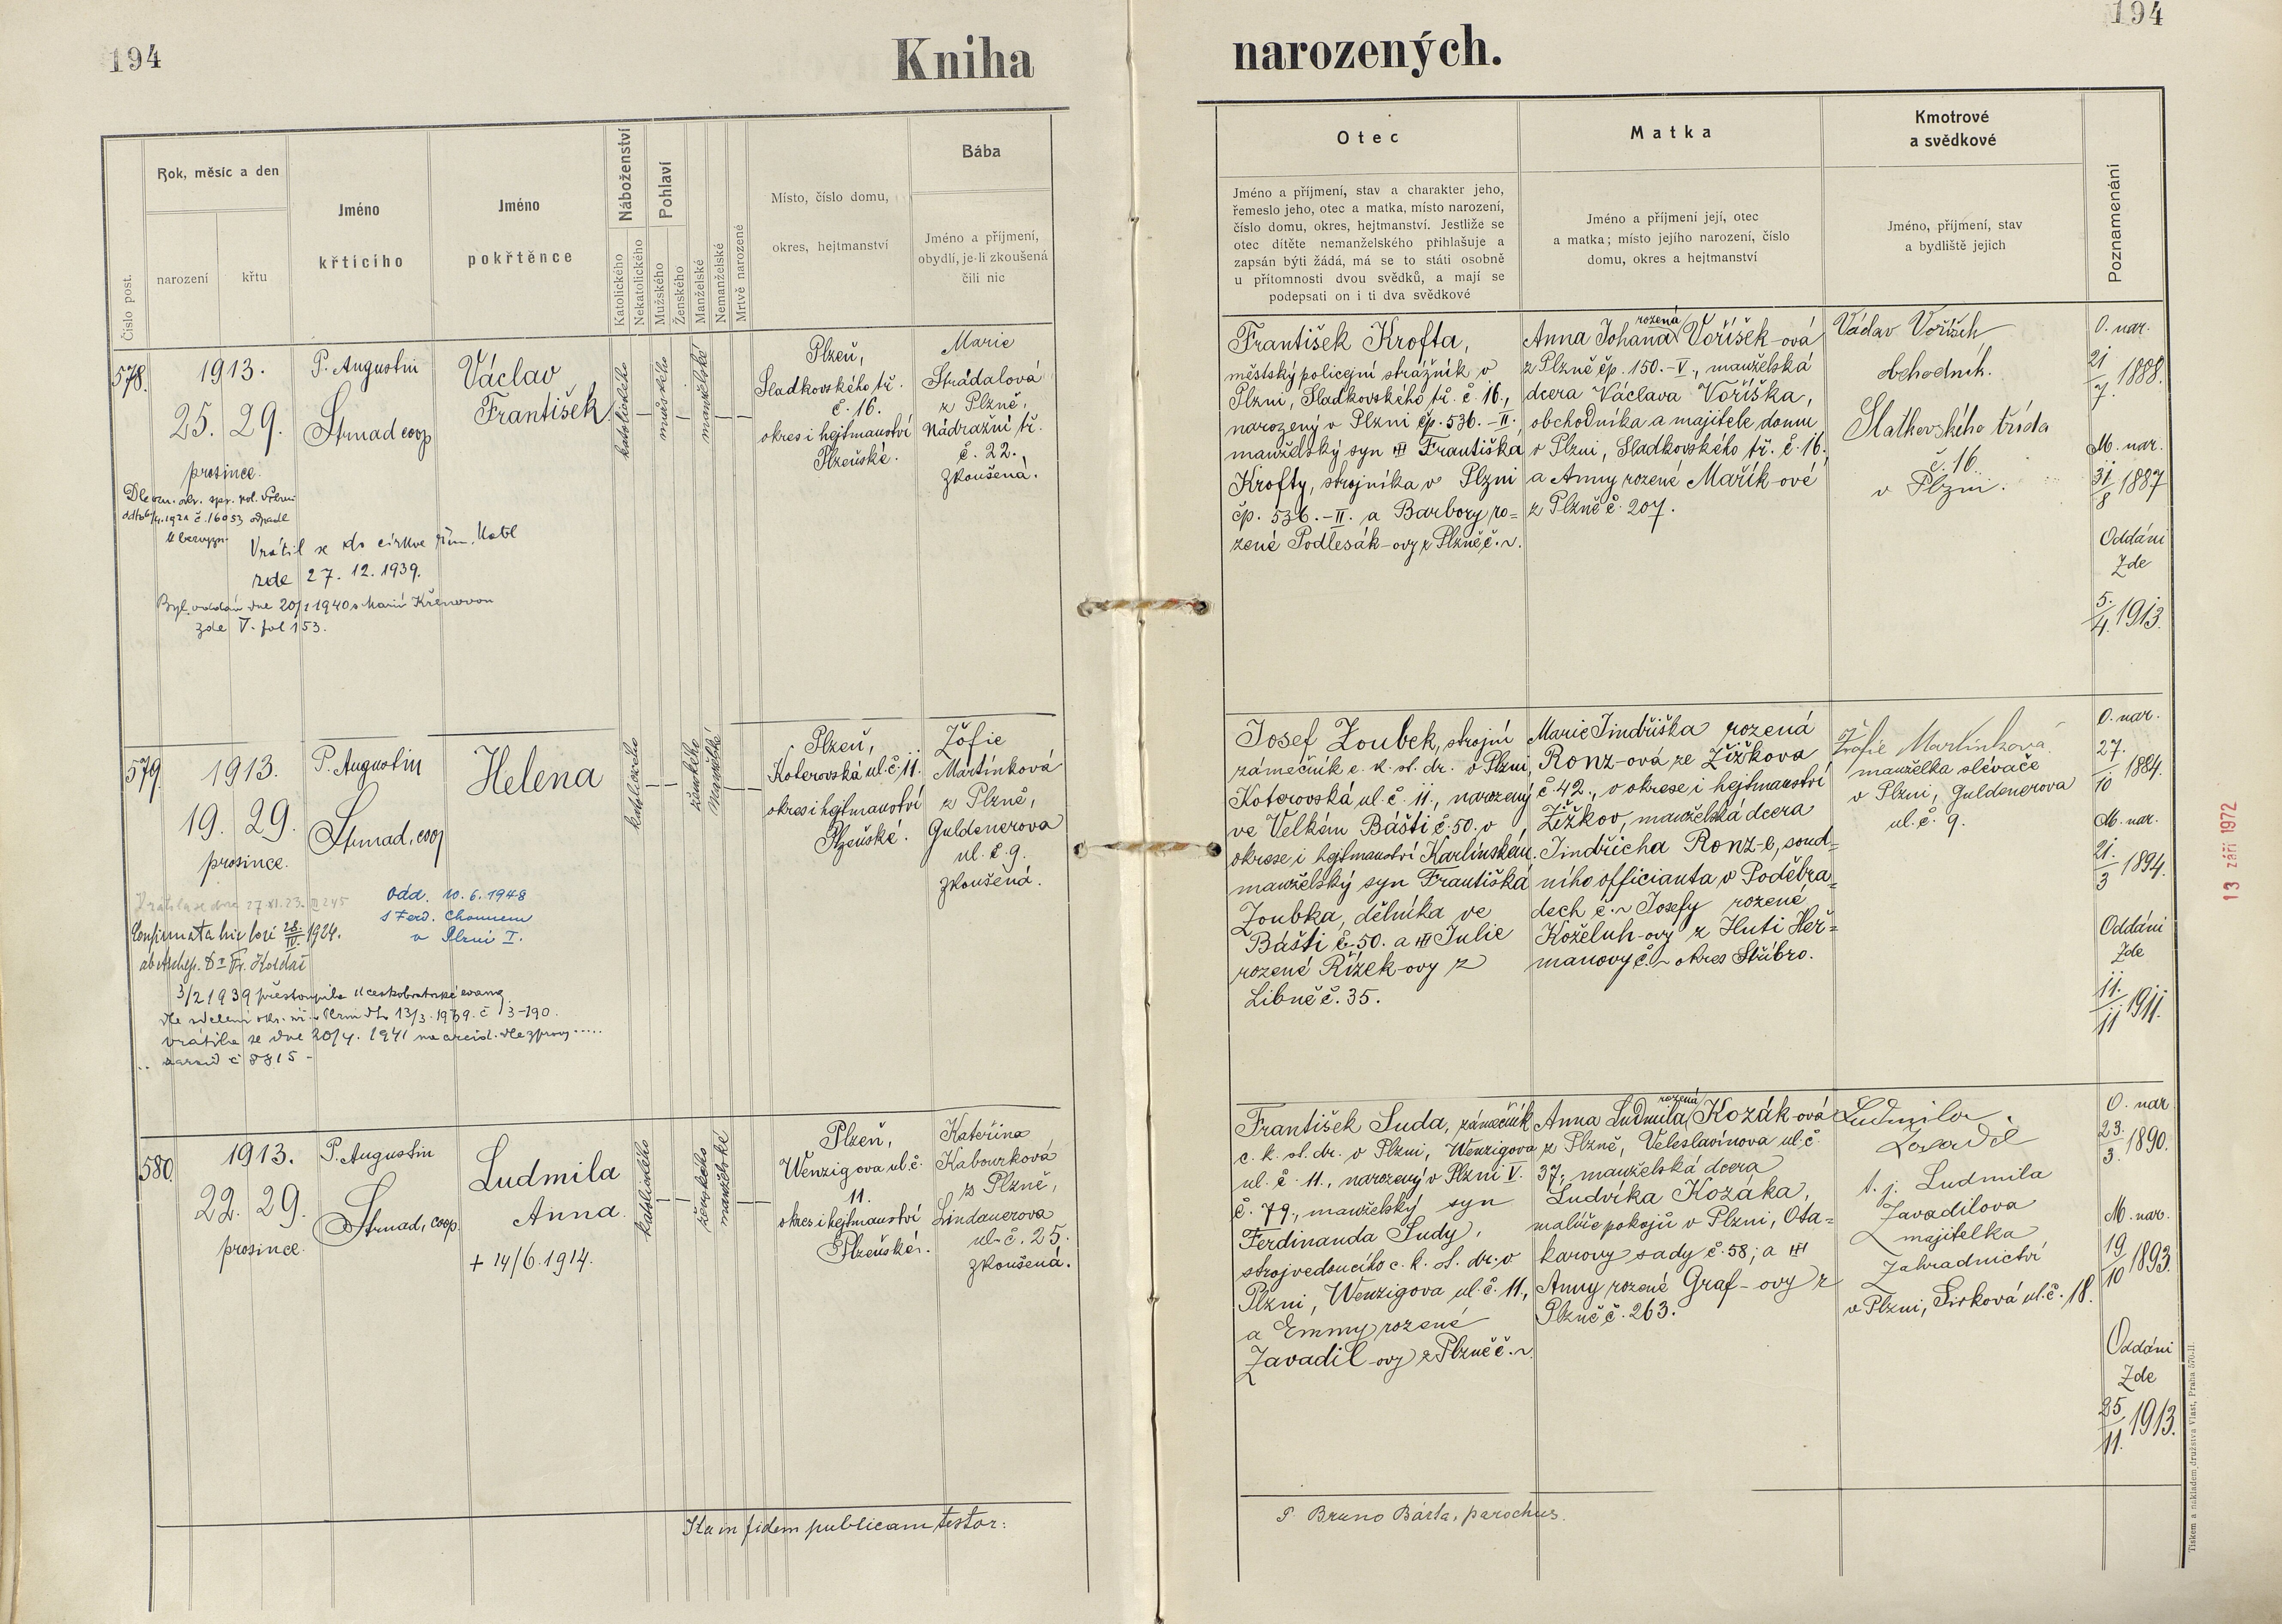 194
Kniha
narozených.
194
Číslo post.
Rok, měsíc a den
narození
křtu
Jméno
křtícího
Jméno
pokřtěnce
Náboženství
Katolického
Nekatolického
Pohlaví
Mužského
Ženského
Manželské
Nemanželské
Mrtvě narozené
Místo, číslo domu,
okres, hejtmanství
Bába
Jméno a příjmení,
obydlí, je-li zkoušená
čili nic
Otec
Jméno a příjmení, stav a charakter jeho,
řemeslo jeho, otec a matka, místo narození,
číslo domu, okres, hejtmanství. Jestliže se
otec dítěte nemanželského přihlašuje a
zapsán býti žádá, má se to státi osobně
u přítomnosti dvou svědků, a mají se
podepsati on i ti dva svědkové
Matka
Jméno a příjmení její, otec
a matka; místo jejího narození, číslo
domu, okres a hejtmanství
Kmotrové
a svědkové
Jméno, příjmení, stav
a bydliště jejich
Poznamenání
578.
1913.
25. 29.
prosince.
P. Augustin
Strnad coop
Václav
František
katolického
mužského
manželské
Plzeň,
Sladkovského tř.
č. 16.
okres i hejtmanství
Plzeňské.
Marie
Strádalová
z Plzně,
Nádražní tř.
č. 22.,
zkoušená.
Vrátil se do církve řím. katol
zde 27. 12. 1939.
Byl oddán dne 20/1 1940 s Marií Křenovou
zde V. fol 153.
František Krofta,
městský policejní strážník v
Plzni, Sladkovského tř. č. 16.,
narozený v Plzni čp. 536.-II.
manželský syn Františka
Krofty, strojníka v Plzni
čp. 536.-II. a Barbory ro=
zené Podlesák-ovy z Plzně č. ~.
Anna Johana rozená Voříšek-ová
z Plzně čp. 150.-V., manželská
dcera Václava Voříška,
obchodníka a majitele domu
v Plzni, Sladkovského tř. č. 16.
a Anny rozené Mařík-ové
z Plzně č. 207.
Václav Voříšek
obchodník.
Slatkovského třída
č. 16.
v Plzni.
O. nar.
21/7 1888.
M. nar.
31/8 1887
Oddáni
Zde
5./4. 1913.
579.
1913.
19. 29.
prosince.
P. Augustin
Strnad, coop
Helena
katolického
ženského
manželské
Plzeň,
Koterovská ul. č. 11.
okres i hejtmanství
Plzeňské.
Žofie
Martínková
z Plzně,
Guldenerova
ul. č. 9.
zkoušená.
odd. 10. 6. 1948
v Plzni I.
Confirmata hic loci 28/IV. 1924.
3/2 1939 přestoupila k českobratrské evang.
vrátila se dne 20/4. 1941
č 8815 -
Josef Zoubek, strojní
zámečník c. k. st. dr. v Plzni,
Koterovská ul. č. 11., narozený
ve Velkém Bášti č. 50. v
okrese i hejtmanství Karlínském,
manželský syn Františka
Zoubka, dělníka ve
Bášti č. 50. a Julie
rozené Řízek-ovy z
Libně č. 35.
Marie Jindřiška rozená
Ronz-ová ze Žižkova
č. 42., v okrese i hejtmanství
Žižkov, manželská dcera
Jindřicha Ronz-e, soud=
ního officianta v Poděbra=
dech č. ~ Josefy rozené
Koželuh-ovy z Huti Heř=
manovy č. ~ okres Stříbro.
Žofie Martínková
manželka slévače
v Plzni, Guldenerova
ul. č. 9.
O. nar.
27./10 1884.
M. nar.
21./3 1894.
Oddáni
Zde
11./11 1911.
13 září 1972
580.
1913.
22. 29.
prosince.
P. Augustin
Strnad, coop.
Ludmila
Anna.
+ 14/6. 1914.
katolického
ženského
manželské
Plzeň,
Wenzigova ul. č.
11.
okres i hejtmanství
Plzeňské.
Kateřina
Kabourková
z Plzně,
Lindauerova
ul. č. 25.
zkoušená.
František Suda, zámečník
c. k. st. dr. v Plzni, Wenzigova
ul. č. 11., narozený v Plzni V.
č. 79., manželský syn
Ferdinanda Sudy,
strojvedoucího c. k. st. dr. v
Plzni, Wenzigova ul. č. 11.,
a Emmy rozené
Zavadil-ovy z Plzně č. ~.
Anna Ludmila rozená Kozák-ová
z Plzně, Veleslavínova ul. č.
37., manželská dcera
Ludvíka Kozáka,
malíře pokojů v Plzni, Ota=
karovy sady č. 58; a
Anny rozené Graf-ovy z
Plzně č. 263.
Ludmila
Zavadil
t. j. Ludmila
Zavadilova
majitelka
Zahradnictví
v Plzni, Sirková ul. č. 18.
O. nar
23./3. 1890.
M. nar.
19/10 1893.
Oddáni
Zde
25/11. 1913.
Ita in fidem publicam testor:
P. Bruno Bárta, parochus.
Tiskem a nákladem družstva Vlast, Praha 570-II.